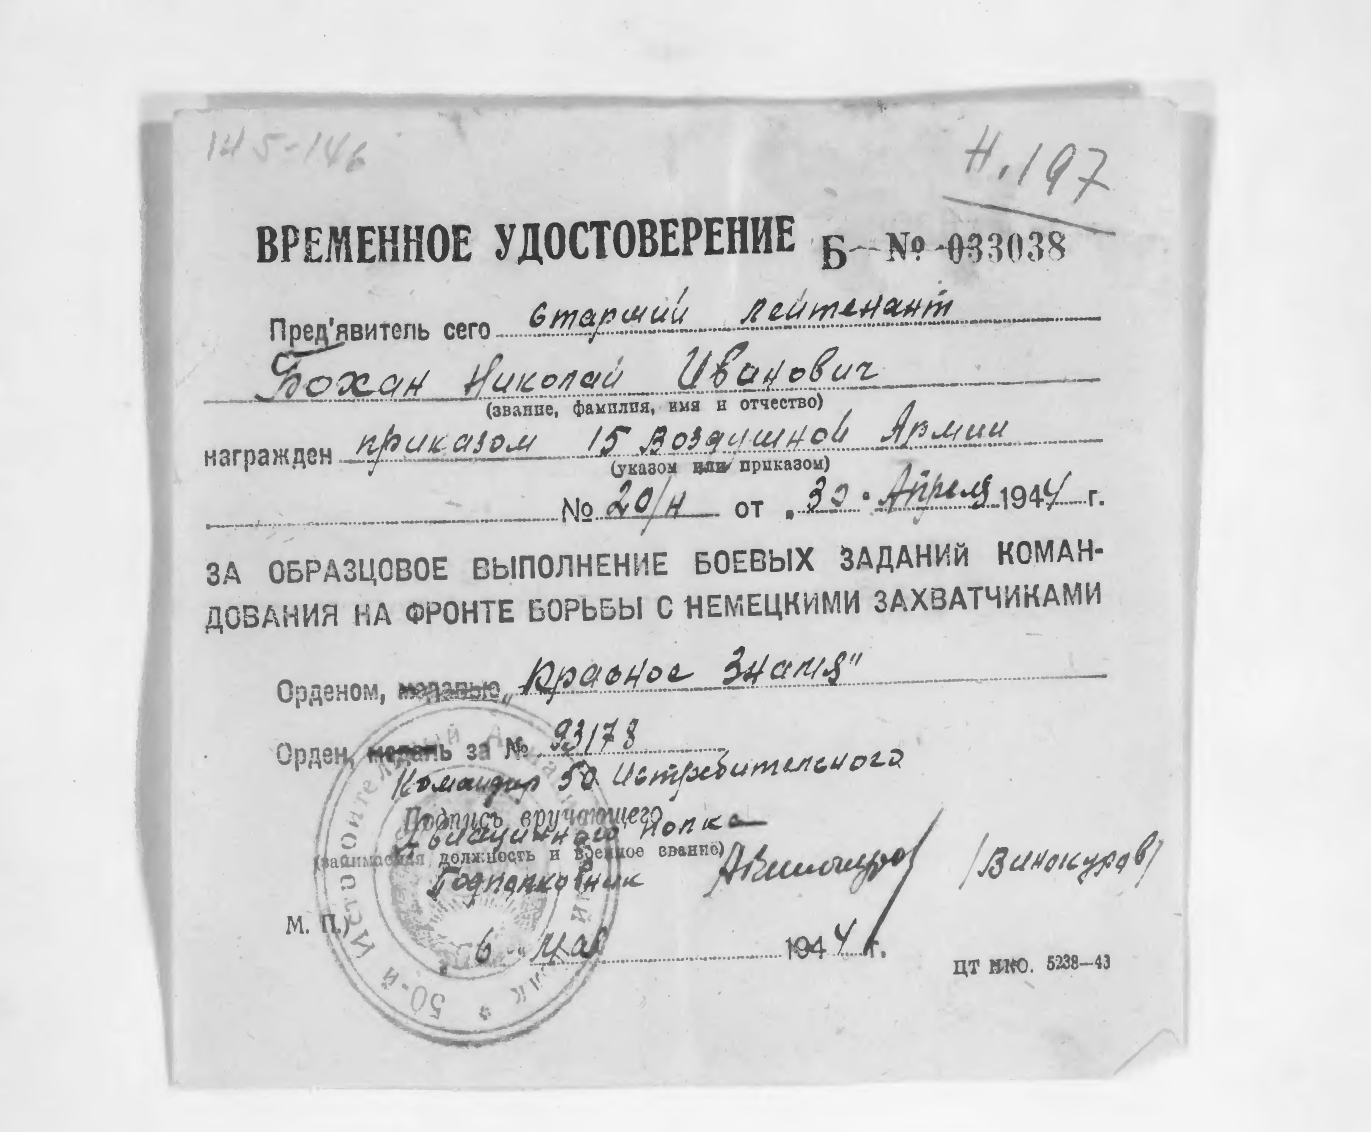 145-146
Н.197
ВРЕМЕННОЕ УДОСТОВЕРЕНИЕ Б № 033038
Пред'явитель сего Старший лейтенант
Бохан Николай Иванович
(звание, фамилия, имя и отчество)
награжден приказом 15 Воздушной Армии
(указом или приказом)
№ 20/н от 30 Апреля 1944 г.
ЗА ОБРАЗЦОВОЕ ВЫПОЛНЕНИЕ БОЕВЫХ ЗАДАНИЙ КОМАН-
ДОВАНИЯ НА ФРОНТЕ БОРЬБЫ С НЕМЕЦКИМИ ЗАХВАТЧИКАМИ
Орденом, медалью „Красное Знамя"
Орден, медань за № 93178
Командир 50 Истребительного
Подпись вручающего
Авиационного полка
(занимаемая должность и военное звание)
Подполковник (Винокуров)
М. П.)
6 мая 1944 г.
ЦТ НКО. 5238—43
50-й Истребительный
полк *